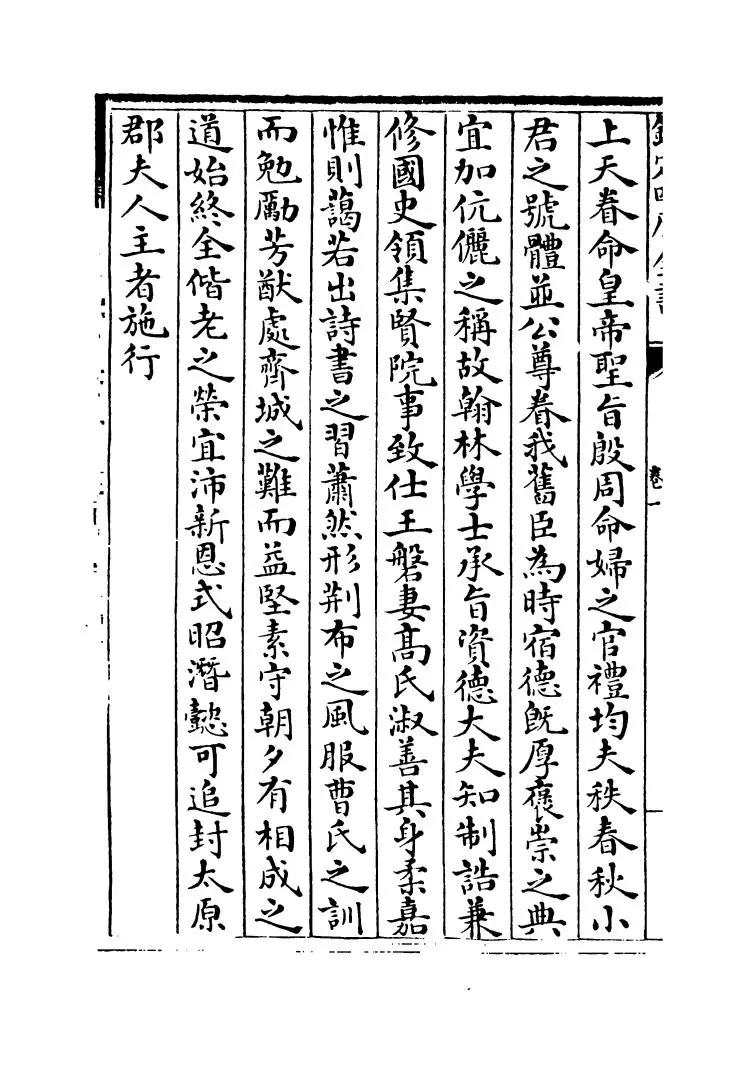 上天眷命皇帝聖旨殷周命婦之官禮均夫秩春秋小
君之號體並公尊眷我舊臣為時宿德旣厚褒崇之典
宜加伉儷之稱故翰林學士承旨資德大夫知制誥兼
修國史領集賢院事致仕王磐妻髙氏淑善其身柔嘉
惟則藹若出詩書之習蕭然形荆布之風服曹氏之訓
而勉勵芳猷處齊城之難而益堅素守朝夕有相成之
道始終全偕老之榮宜沛新恩式昭潛懿可追封太原
郡夫人主者施行
卷一